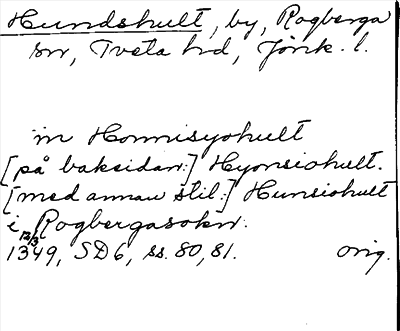 Hundshult, by, Rogberga
sn, Tveta hd, Jönk. l.
in Honnisyohult
[på baksidan:] Hyonsiohult.
[med annan stil:] Hunsiohult
i Rogbergasokn.
12/3 1349, SD 6, ss. 80, 81. orig.